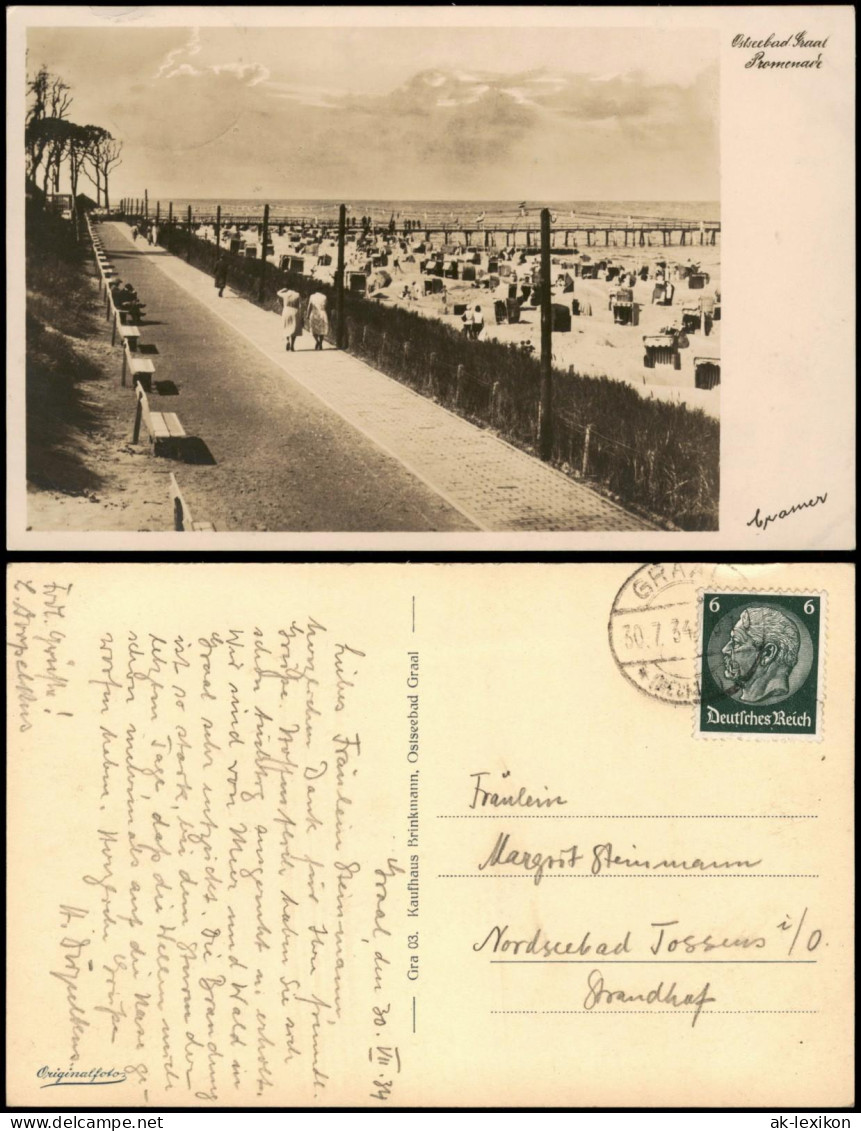 Ostseebad Graal
Promenade
Cramer
GRAAL
30.7.34
6 6
Deutsches Reich
Graal, den 30. VII. 34
Liebes Fräulein Steinmann,
herzlichen Dank für Ihre freundl.
Grüße. Hoffentlich haben Sie sich
schon tüchtig ausgeruht u. erholt.
Wir sind von Meer und Wald in
Graal sehr entzückt. Die Brandung
ist so stark, bei dem Sturm der
letzten Tage, daß die Wellen mich
schon mehrmals auf die Nase ge-
worfen haben. Herzliche Grüße
Frdl. Grüße!
Gra 03. Kaufhaus Brinkmann, Ostseebad Graal
Fräulein
Margrit Steinmann
Nordseebad Tossens i/O.
Strandhof
Originalfoto
www.delcampe.net
ak-lexikon